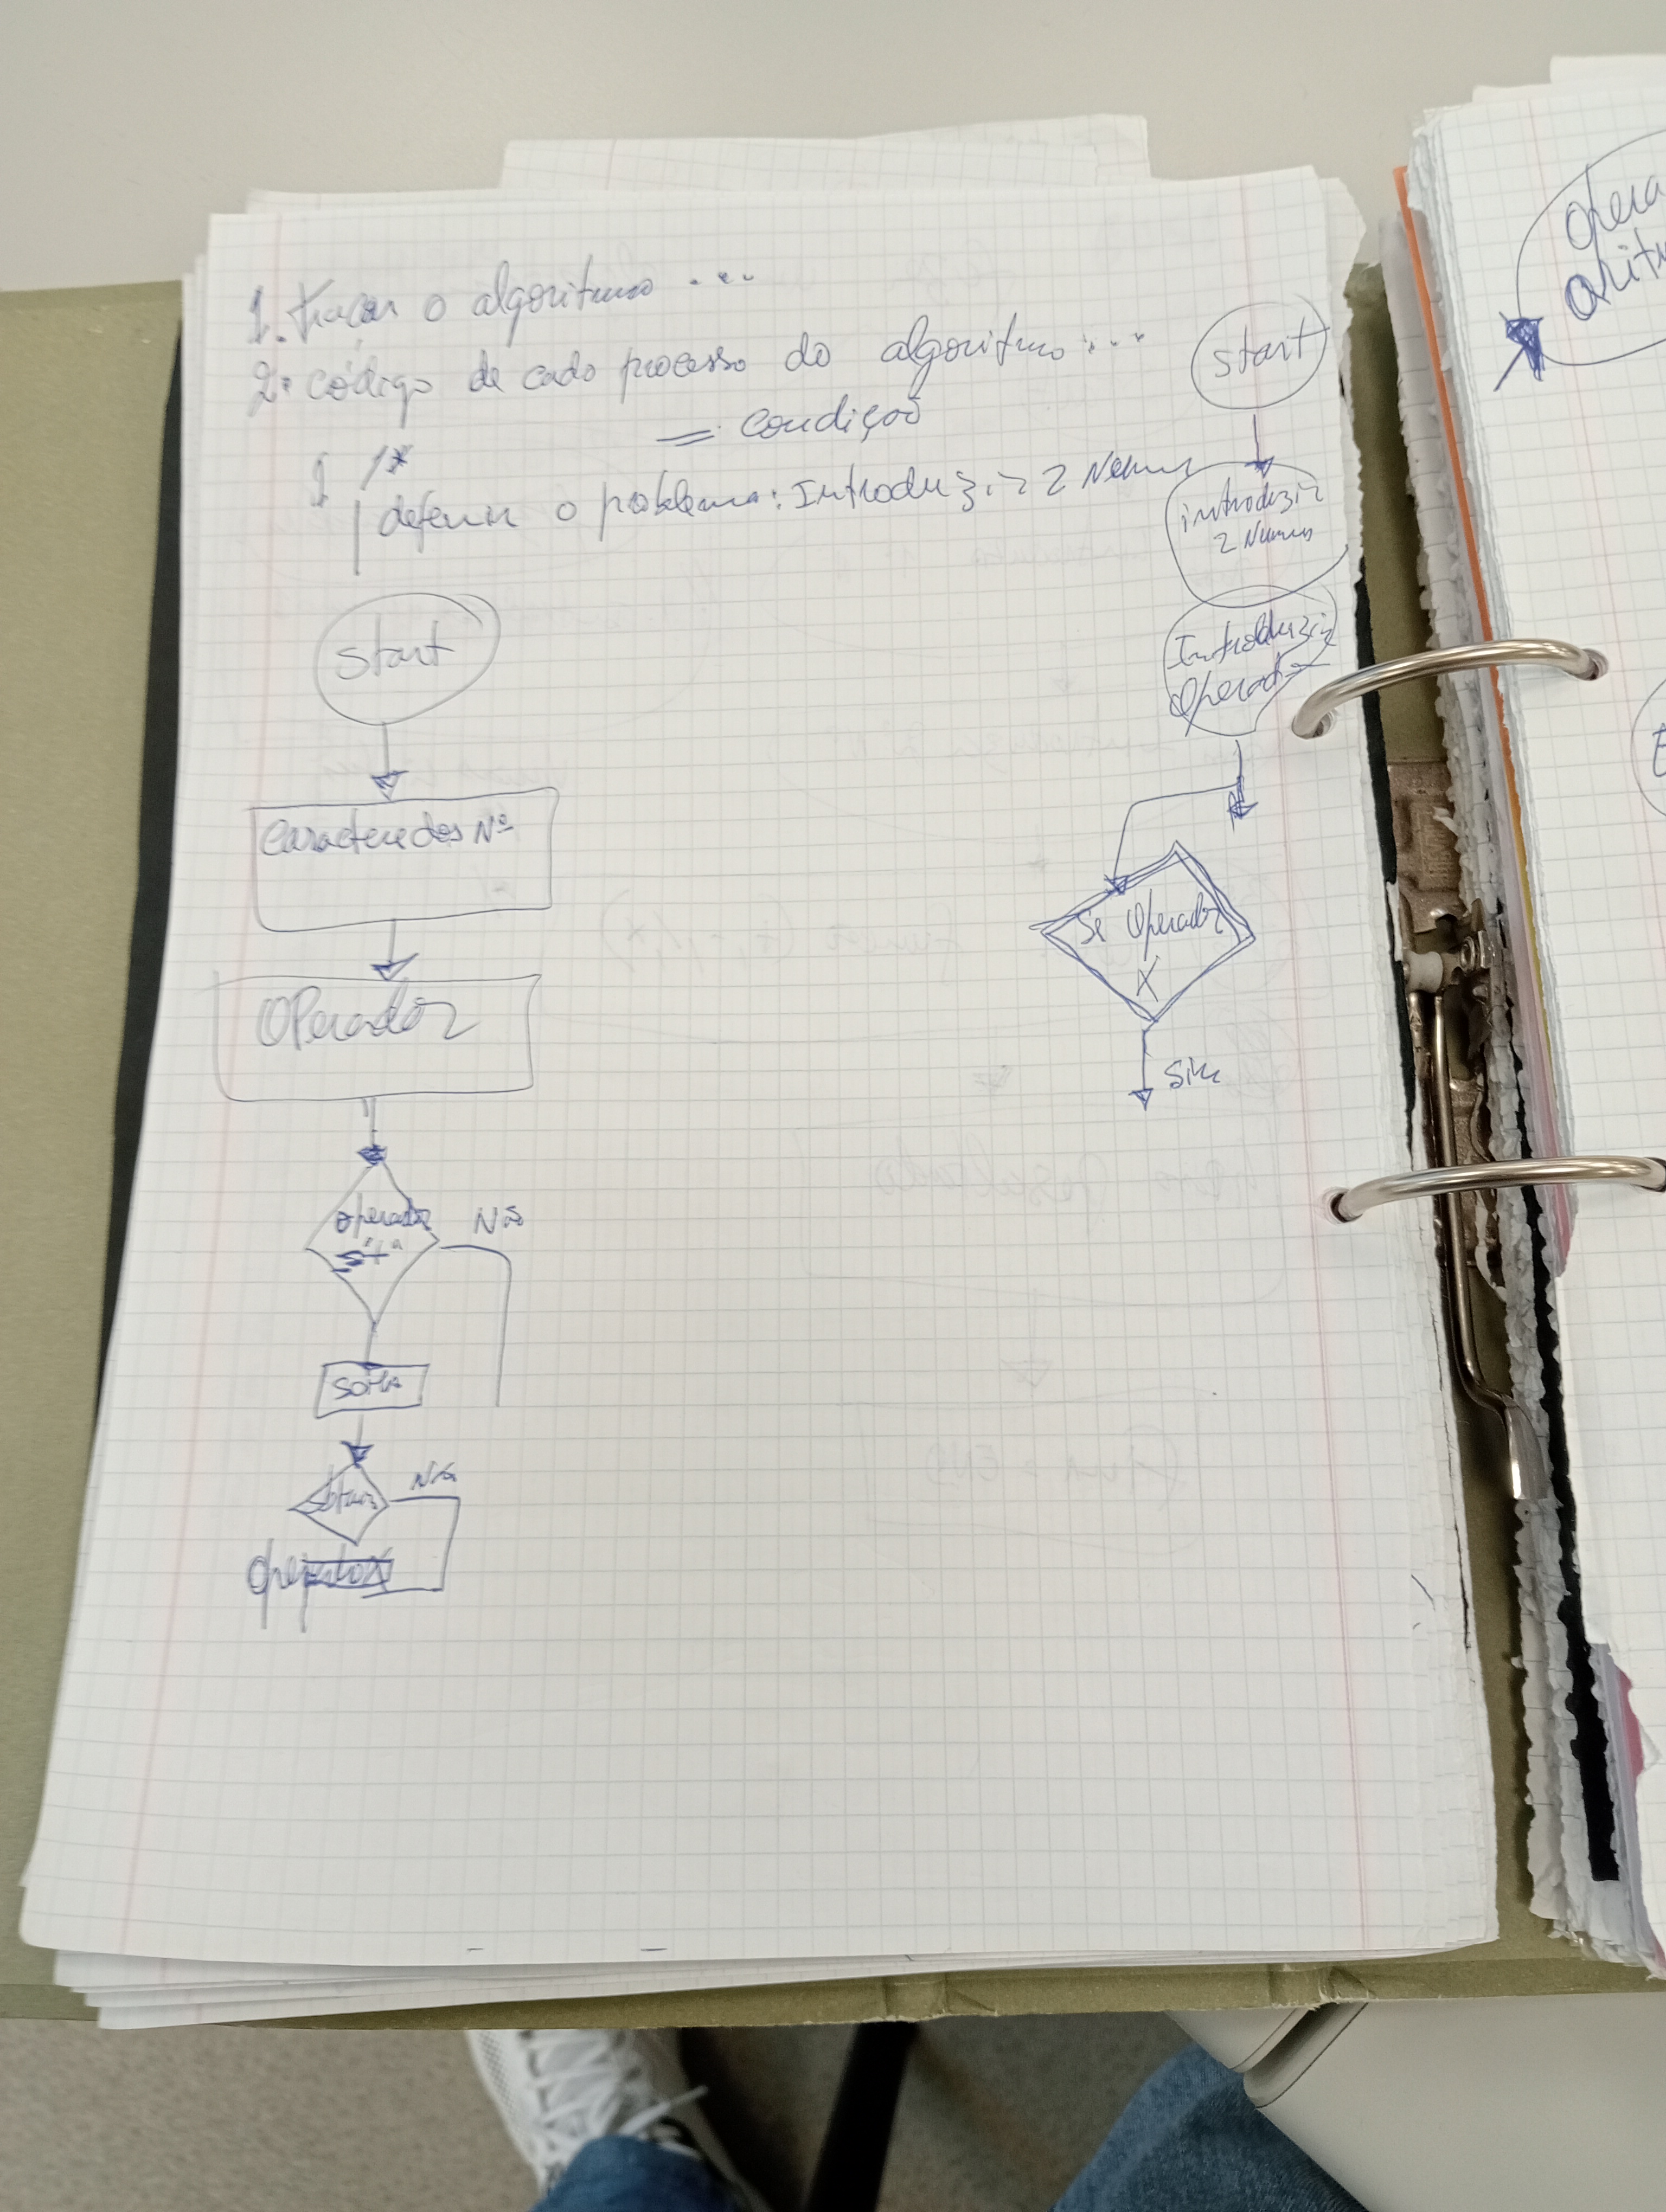 1. traçar o algoritmo ...
2. código de cada processo do algoritmo ...
= condição
1 /*
definir o problema: Introduzir 2 Numeros
start
caractere dos Nº
Operador
operador
"+"
Não
soma
Não
start
introduzir
2 Numeros
Introduzir
Operador
Se Operador
X
Sim